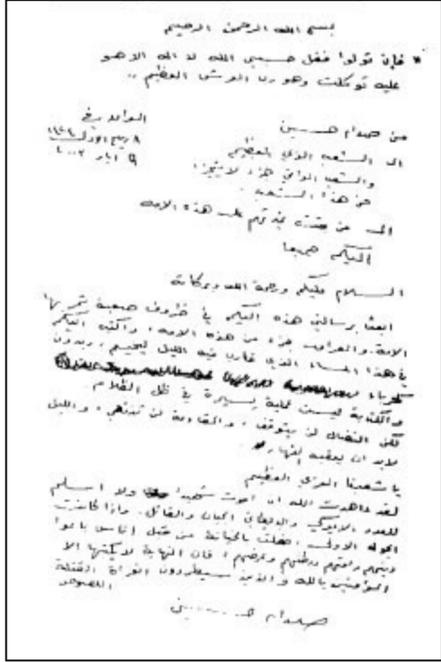 بسم الله الرحمن الرحيم
* فإن تولوا فقل حسبي الله لا اله الا هو
عليه توكلت وهو رب العرش العظيم ..
٨ ربيع الأول
٩ أيار ٢٠٠٣
من صدام حسين
الى الشعب العظيم
جزء لا يتجزأ
من هذا الشعب
الى من هذه الامة
اليكم جميعا
السلام عليكم ورحمة الله وبركاته
ابعث برسالتي هذه اليكم في ظروف صعبة تمر بها
الامة والعراق جزء من هذه الامة، واكتب اليكم
في هذا المساء الذي قارب فيه الليل ليخيم، وبدون
كهرباء
والكتابة ليست عملية يسيرة في ظل الظلام
لكن النضال لن يتوقف، والمقاومة لن تنتهي، والليل
لابد ان يعقبه النهار.
يا شعبنا العربي العظيم
لقد عاهدت الله ان اموت شهيدا ولا اسلم
للعدو الامريكي والبريطاني الجبان والقاتل. واذا كانت
الجولة الاولى بالخيانة من قبل اناس باعوا
دينهم وامتهم ووطنهم وعرضهم، فان النهاية لا يكتبها الا
المؤمنين بالله والذين سيطردون الغزاة القتلة
اللصوص
صدام حسين